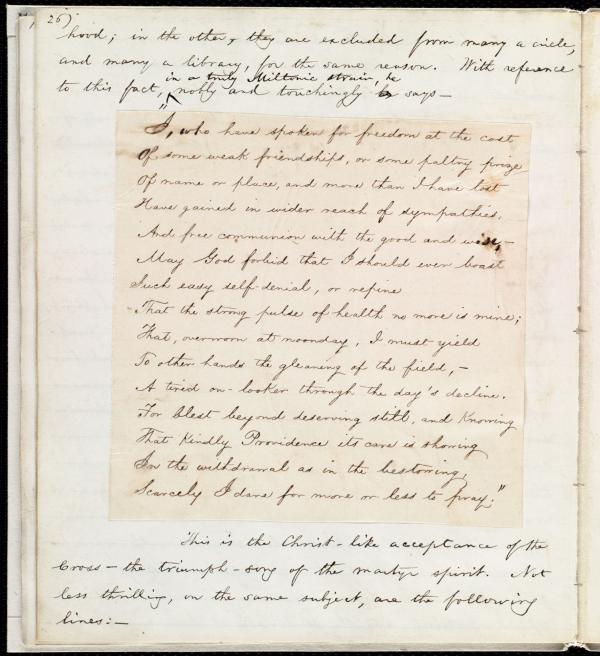 26).
hood; in the other, they are excluded from many a circle,
and many a library, for the same reason. With reference
in a truly Miltonic strain, he
to this fact, nobly and touchingly says—
"I, who have spoken for freedom at the cost
Of some weak friendships, or some paltry prize
Of name or place, and more than I have lost
Have gained in wider reach of sympathies,
And free communion with the good and wise,—
May God forbid that I should ever boast
Such easy self-denial, or repine
That the strong pulse of health no more is mine;
That, overworn at noonday, I must yield
To other hands the gleaning of the field,—
A tired on-looker through the day's decline.
For blest beyond deserving still, and Knowing
That Kindly Providence its care is showing
In the withdrawal as in the bestowing,
Scarcely I dare for more or less to pray."
This is the Christ-like acceptance of the
Cross—the triumph-song of the martyr spirit. Not
less thrilling, on the same subject, are the following
lines:—